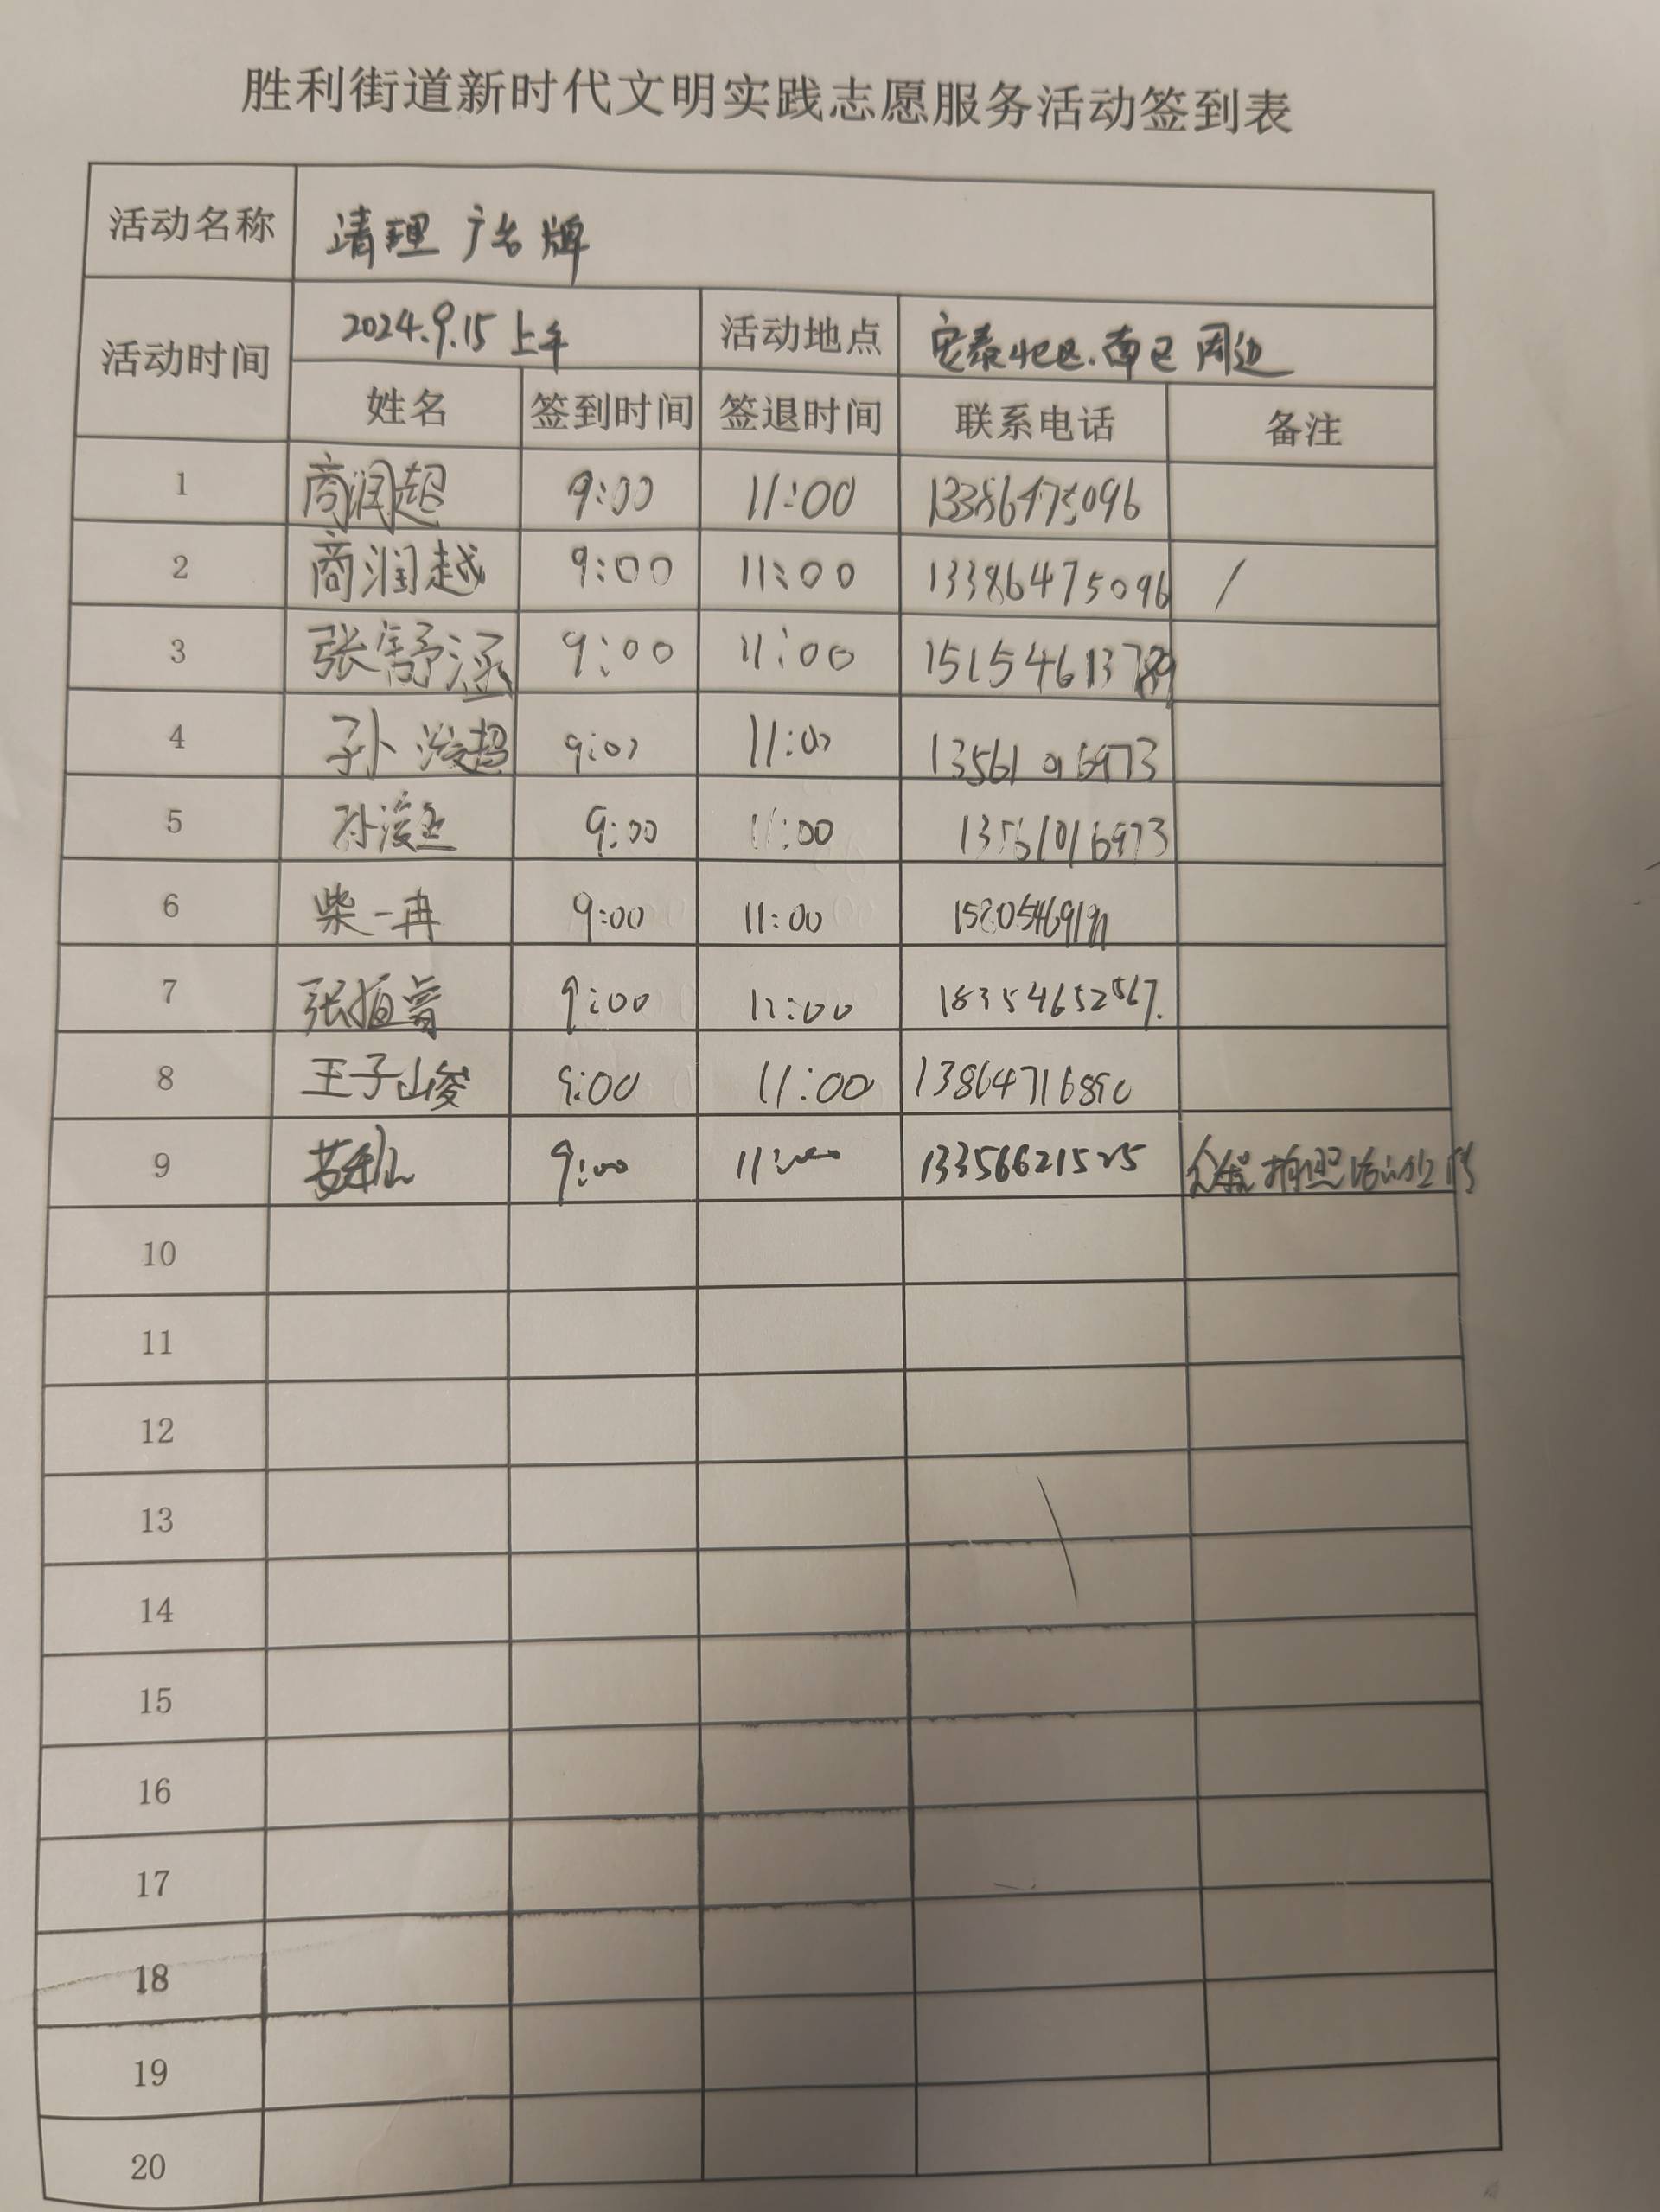 胜利街道新时代文明实践志愿服务活动签到表
活动名称 清理广告牌
活动时间 2024.9.15上午 活动地点 安泰北区.南区周边
姓名 签到时间 签退时间 联系电话 备注
1 商润超 9:00 11:00 13386475096
2 商润越 9:00 11:00 13386475096 /
3 张舒涵 9:00 11:00 15154613789
4 孙浚超 9:00 11:00 13561016973
5 孙浚 9:00 11:00 13561016973
6 柴一冉 9:00 11:00
7 张 9:00 11:00 18354652567.
8 王子峻 9:00 11:00 13864716890
9 9:00 11:00 13356621525
10
11
12
13
14
15
16
17
18
19
20